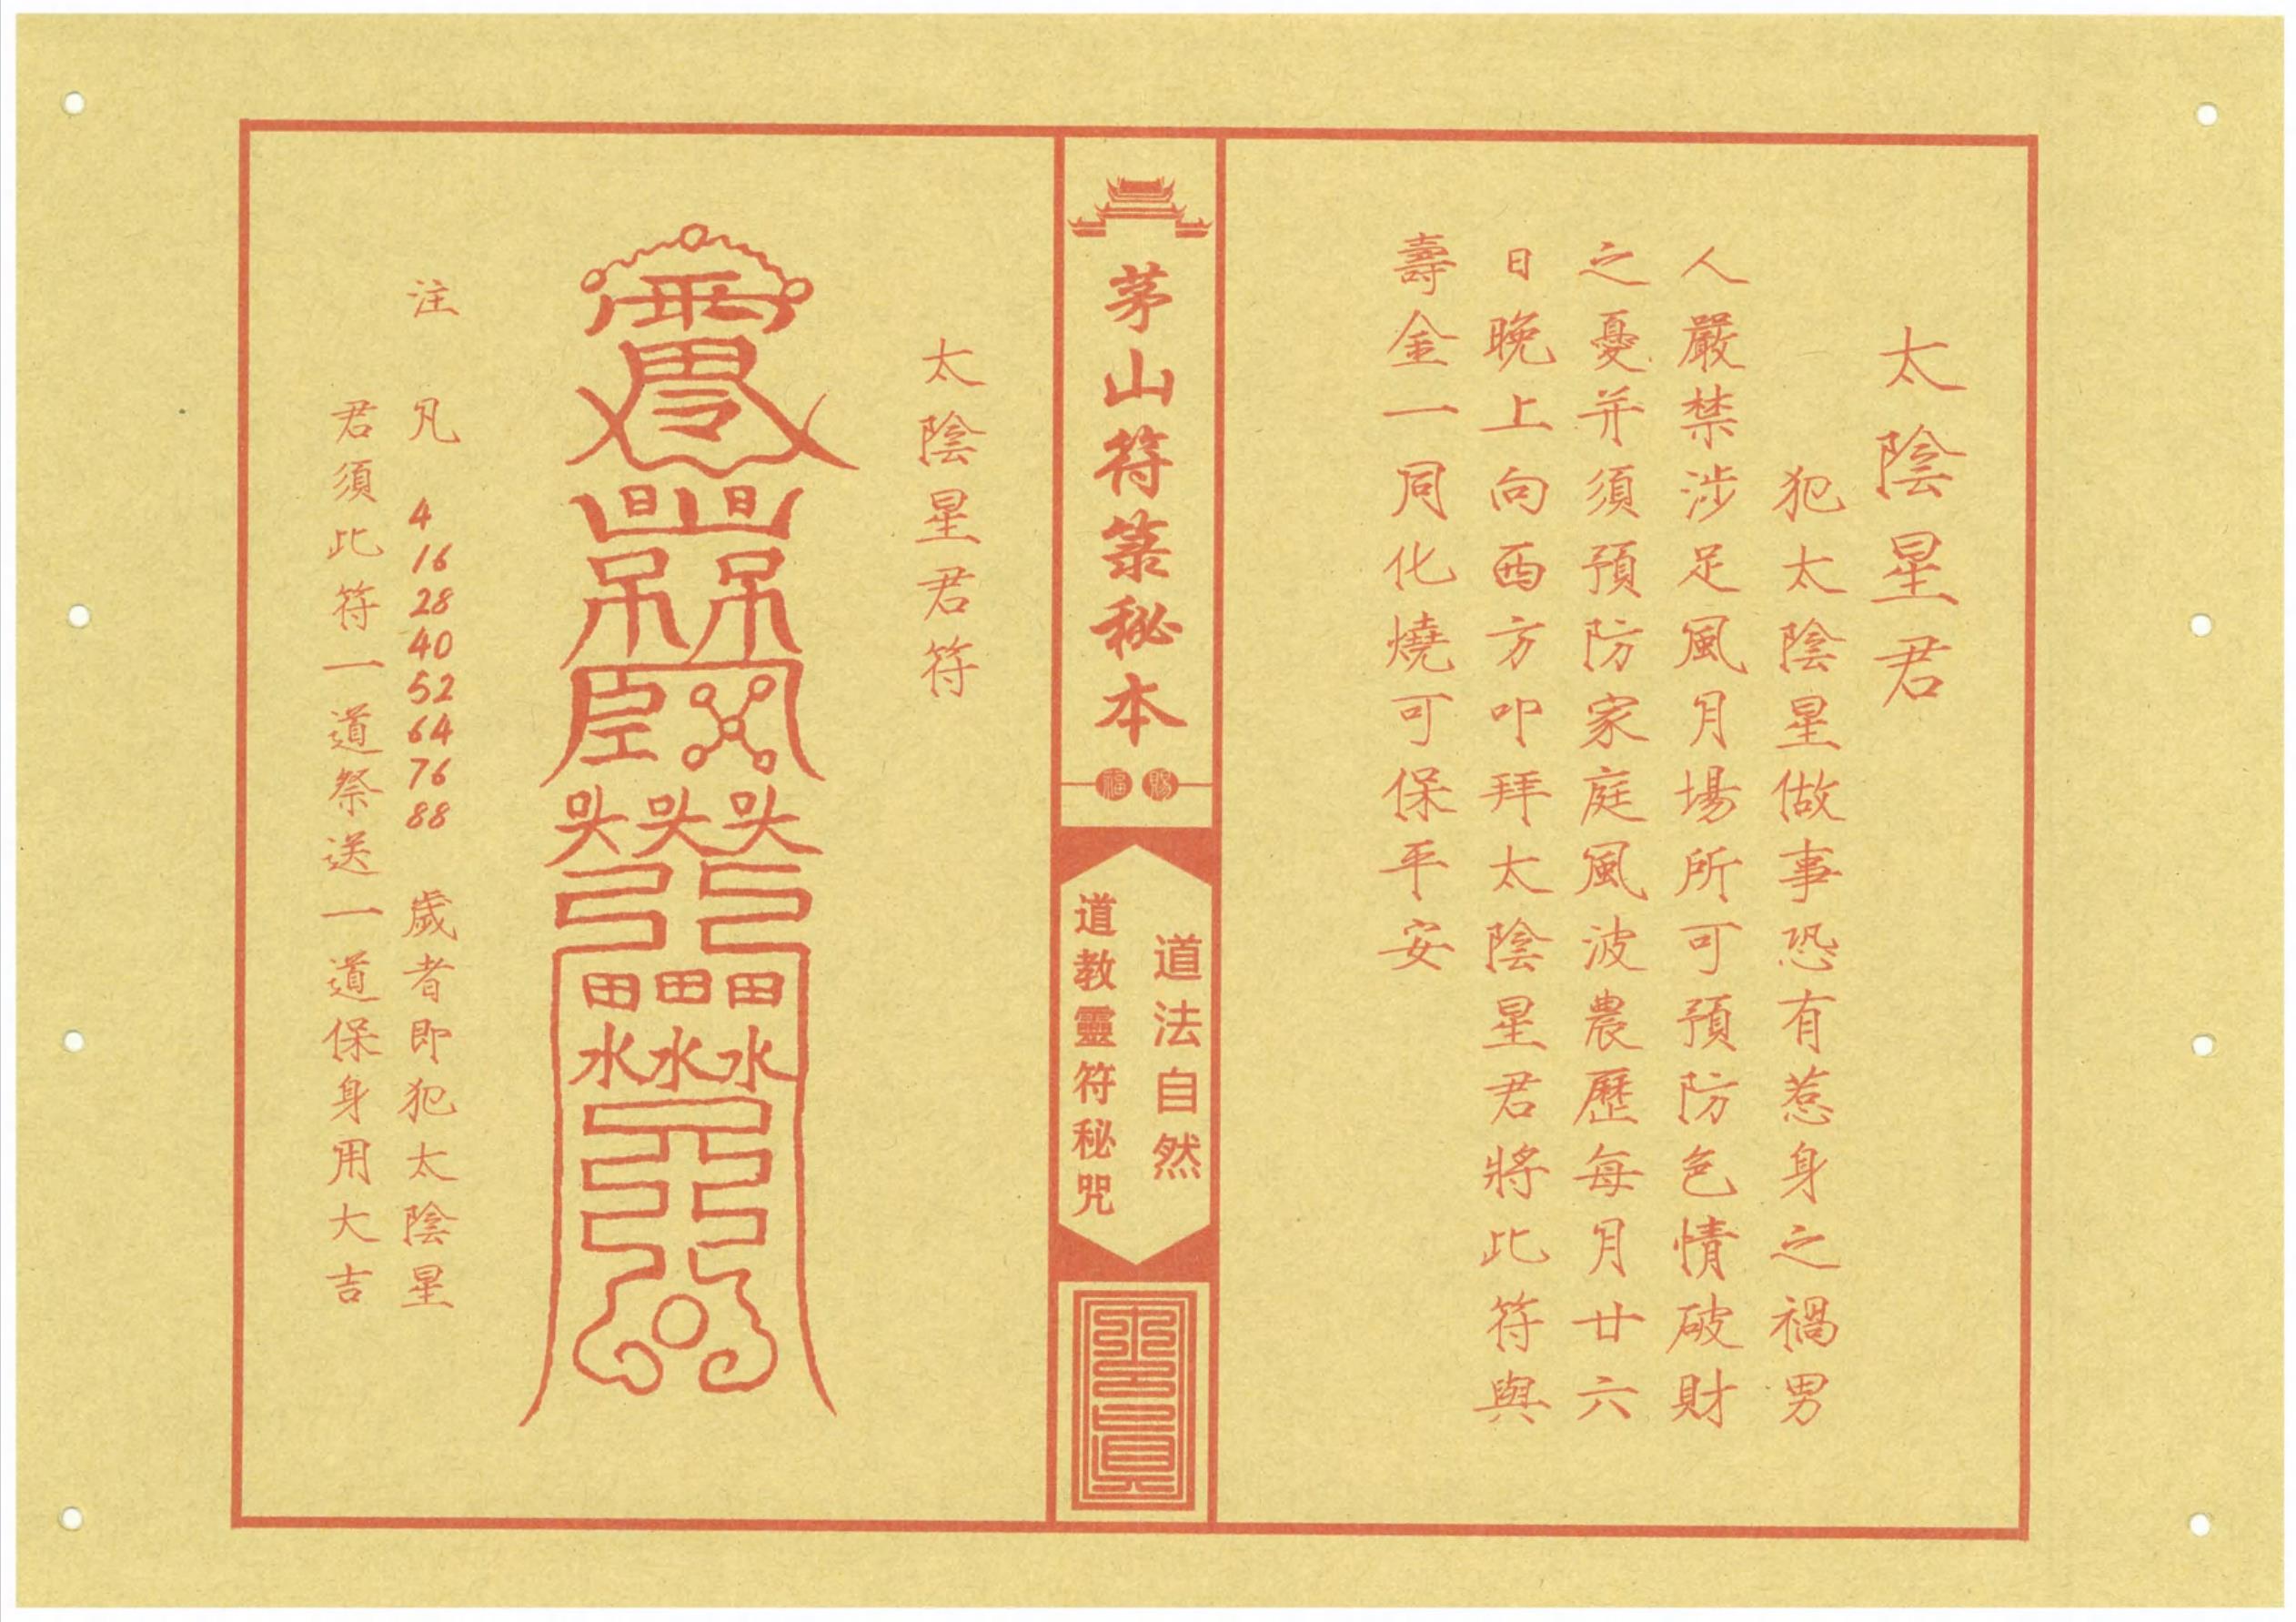 太陰星君
犯太陰星做事恐有惹身之禍男
人嚴禁涉足風月場所可預防色情破財
之憂并須預防家庭風波農歷每月廿六
日晚上向西方叩拜太陰星君將此符與
壽金一同化燒可保平安
茅山符箓秘本
賜福
道法自然
道教靈符秘咒
太陰星君符
注 凡 4 16 28 40 52 64 76 88 歲者即犯太陰星
君須此符一道祭送一道保身用大吉